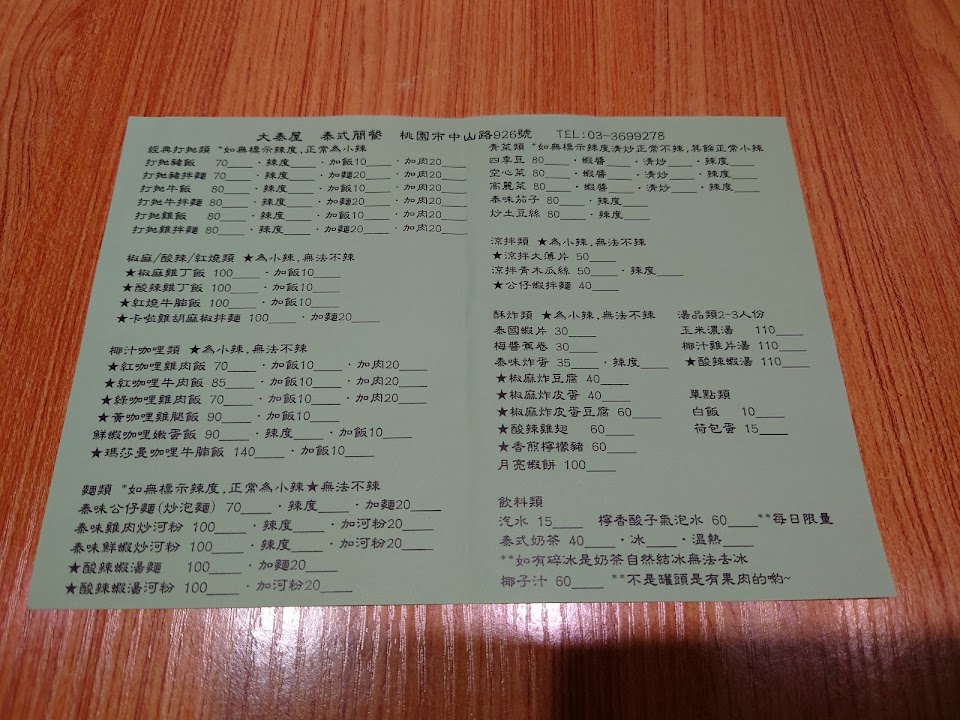 大泰屋 泰式簡餐 桃園市中山路926號 TEL:03-3699278
經典打拋類 *如無標示辣度,正常為小辣
打拋豬飯 70____·辣度____·加飯10____·加肉20____
打拋豬拌麵 70____·辣度____·加麵20____·加肉20____
打拋牛飯 80____·辣度____·加飯10____·加肉20____
打拋牛拌麵 80____·辣度____·加麵20____·加肉20____
打拋雞飯 80____·辣度____·加飯10____·加肉20____
打拋雞拌麵 80____·辣度____·加麵20____·加肉20____
椒麻/酸辣/紅燒類 ★為小辣,無法不辣
★椒麻雞丁飯 100____·加飯10____
★酸辣雞丁飯 100____·加飯10____
★紅燒牛腩飯 100____·加飯10____
★卡啦雞胡麻椒拌麵 100____·加麵20____
椰汁咖哩類 ★為小辣,無法不辣
★紅咖哩雞肉飯 70____·加飯10____·加肉20____
★紅咖哩牛肉飯 85____·加飯10____·加肉20____
★綠咖哩雞肉飯 70____·加飯10____·加肉20____
★黃咖哩雞腿飯 90____·加飯10____
鮮蝦咖哩嫩蛋飯 90____·辣度____·加飯10____
★瑪莎曼咖哩牛腩飯 140____·加飯10____
麵類 *如無標示辣度,正常為小辣★無法不辣
泰味公仔麵(炒泡麵) 70____·辣度____·加麵20____
泰味雞肉炒河粉 100____·辣度____·加河粉20____
泰味鮮蝦炒河粉 100____·辣度____·加河粉20____
★酸辣蝦湯麵 100____·加麵20____
★酸辣蝦湯河粉 100____·加河粉20____
青菜類 *如無標示辣度清炒正常不辣,其餘正常小辣
四季豆 80____·蝦醬____·清炒____·辣度____
空心菜 80____·蝦醬____·清炒____·辣度____
高麗菜 80____·蝦醬____·清炒____·辣度____
泰味茄子 80____·辣度____
炒土豆絲 80____·辣度____
涼拌類 ★為小辣,無法不辣
★涼拌大薄片 50____
涼拌青木瓜絲 50____·辣度____
★公仔蝦拌麵 40____
酥炸類 ★為小辣,無法不辣
泰國蝦片 30____
梅醬蕉卷 30____
泰味炸蛋 35____·辣度____
★椒麻炸豆腐 40____
★椒麻炸皮蛋 40____
★椒麻炸皮蛋豆腐 60____
★酸辣雞翅 60____
★香煎檸檬豬 60____
月亮蝦餅 100____
湯品類2-3人份
玉米濃湯 110____
椰汁雞片湯 110____
★酸辣蝦湯 110____
單點類
白飯 10____
荷包蛋 15____
飲料類
汽水 15____ 檸香酸子氣泡水 60____**每日限量
泰式奶茶 40____·冰____·溫熱____
**如有碎冰是奶茶自然結冰無法去冰
椰子汁 60____ **不是罐頭是有果肉的喲~